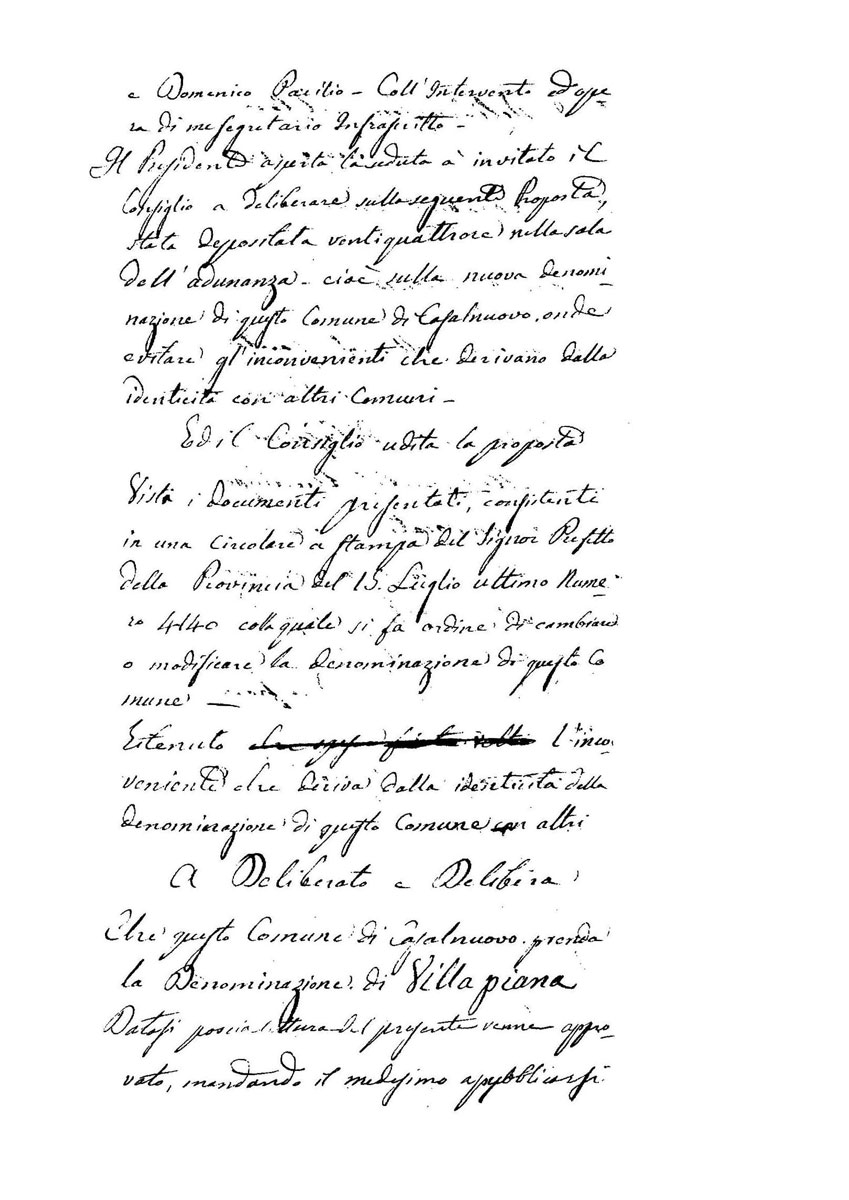 e Domenico Pacilio – Coll'Intervento ed ope-
ra di me Segretario Infrascritto –
Il Presidente aperta la seduta à invitato il
Consiglio a deliberare sulla seguente Proposta,
stata depositata ventiquattrore nella sala
dell'adunanza – cioè sulla nuova denomi-
nazione di questo Comune di Casalnuovo, onde
evitare gl'inconvenienti che derivano dalla
identicità con altri Comuni –
Ed il Consiglio udita la proposta
Visti i documenti presentati, consistenti
in una circolare a stampa del Signor Prefetto
della Provincia del 15 Luglio ultimo Nume-
ro 4140 colla quale si fa ordine di cambiare
o modificare la denominazione di questo Co
mune –
Ritenuto l'inco-
veniente che deriva dalla identicità della
denominazione di questo Comune con altri
A Deliberato e Delibera
Che questo Comune di Casalnuovo prenda
la Denominazione di Villapiana
Datasi poscia lettura del presente venne appro-
vato, mandando il medesimo a pubblicarsi